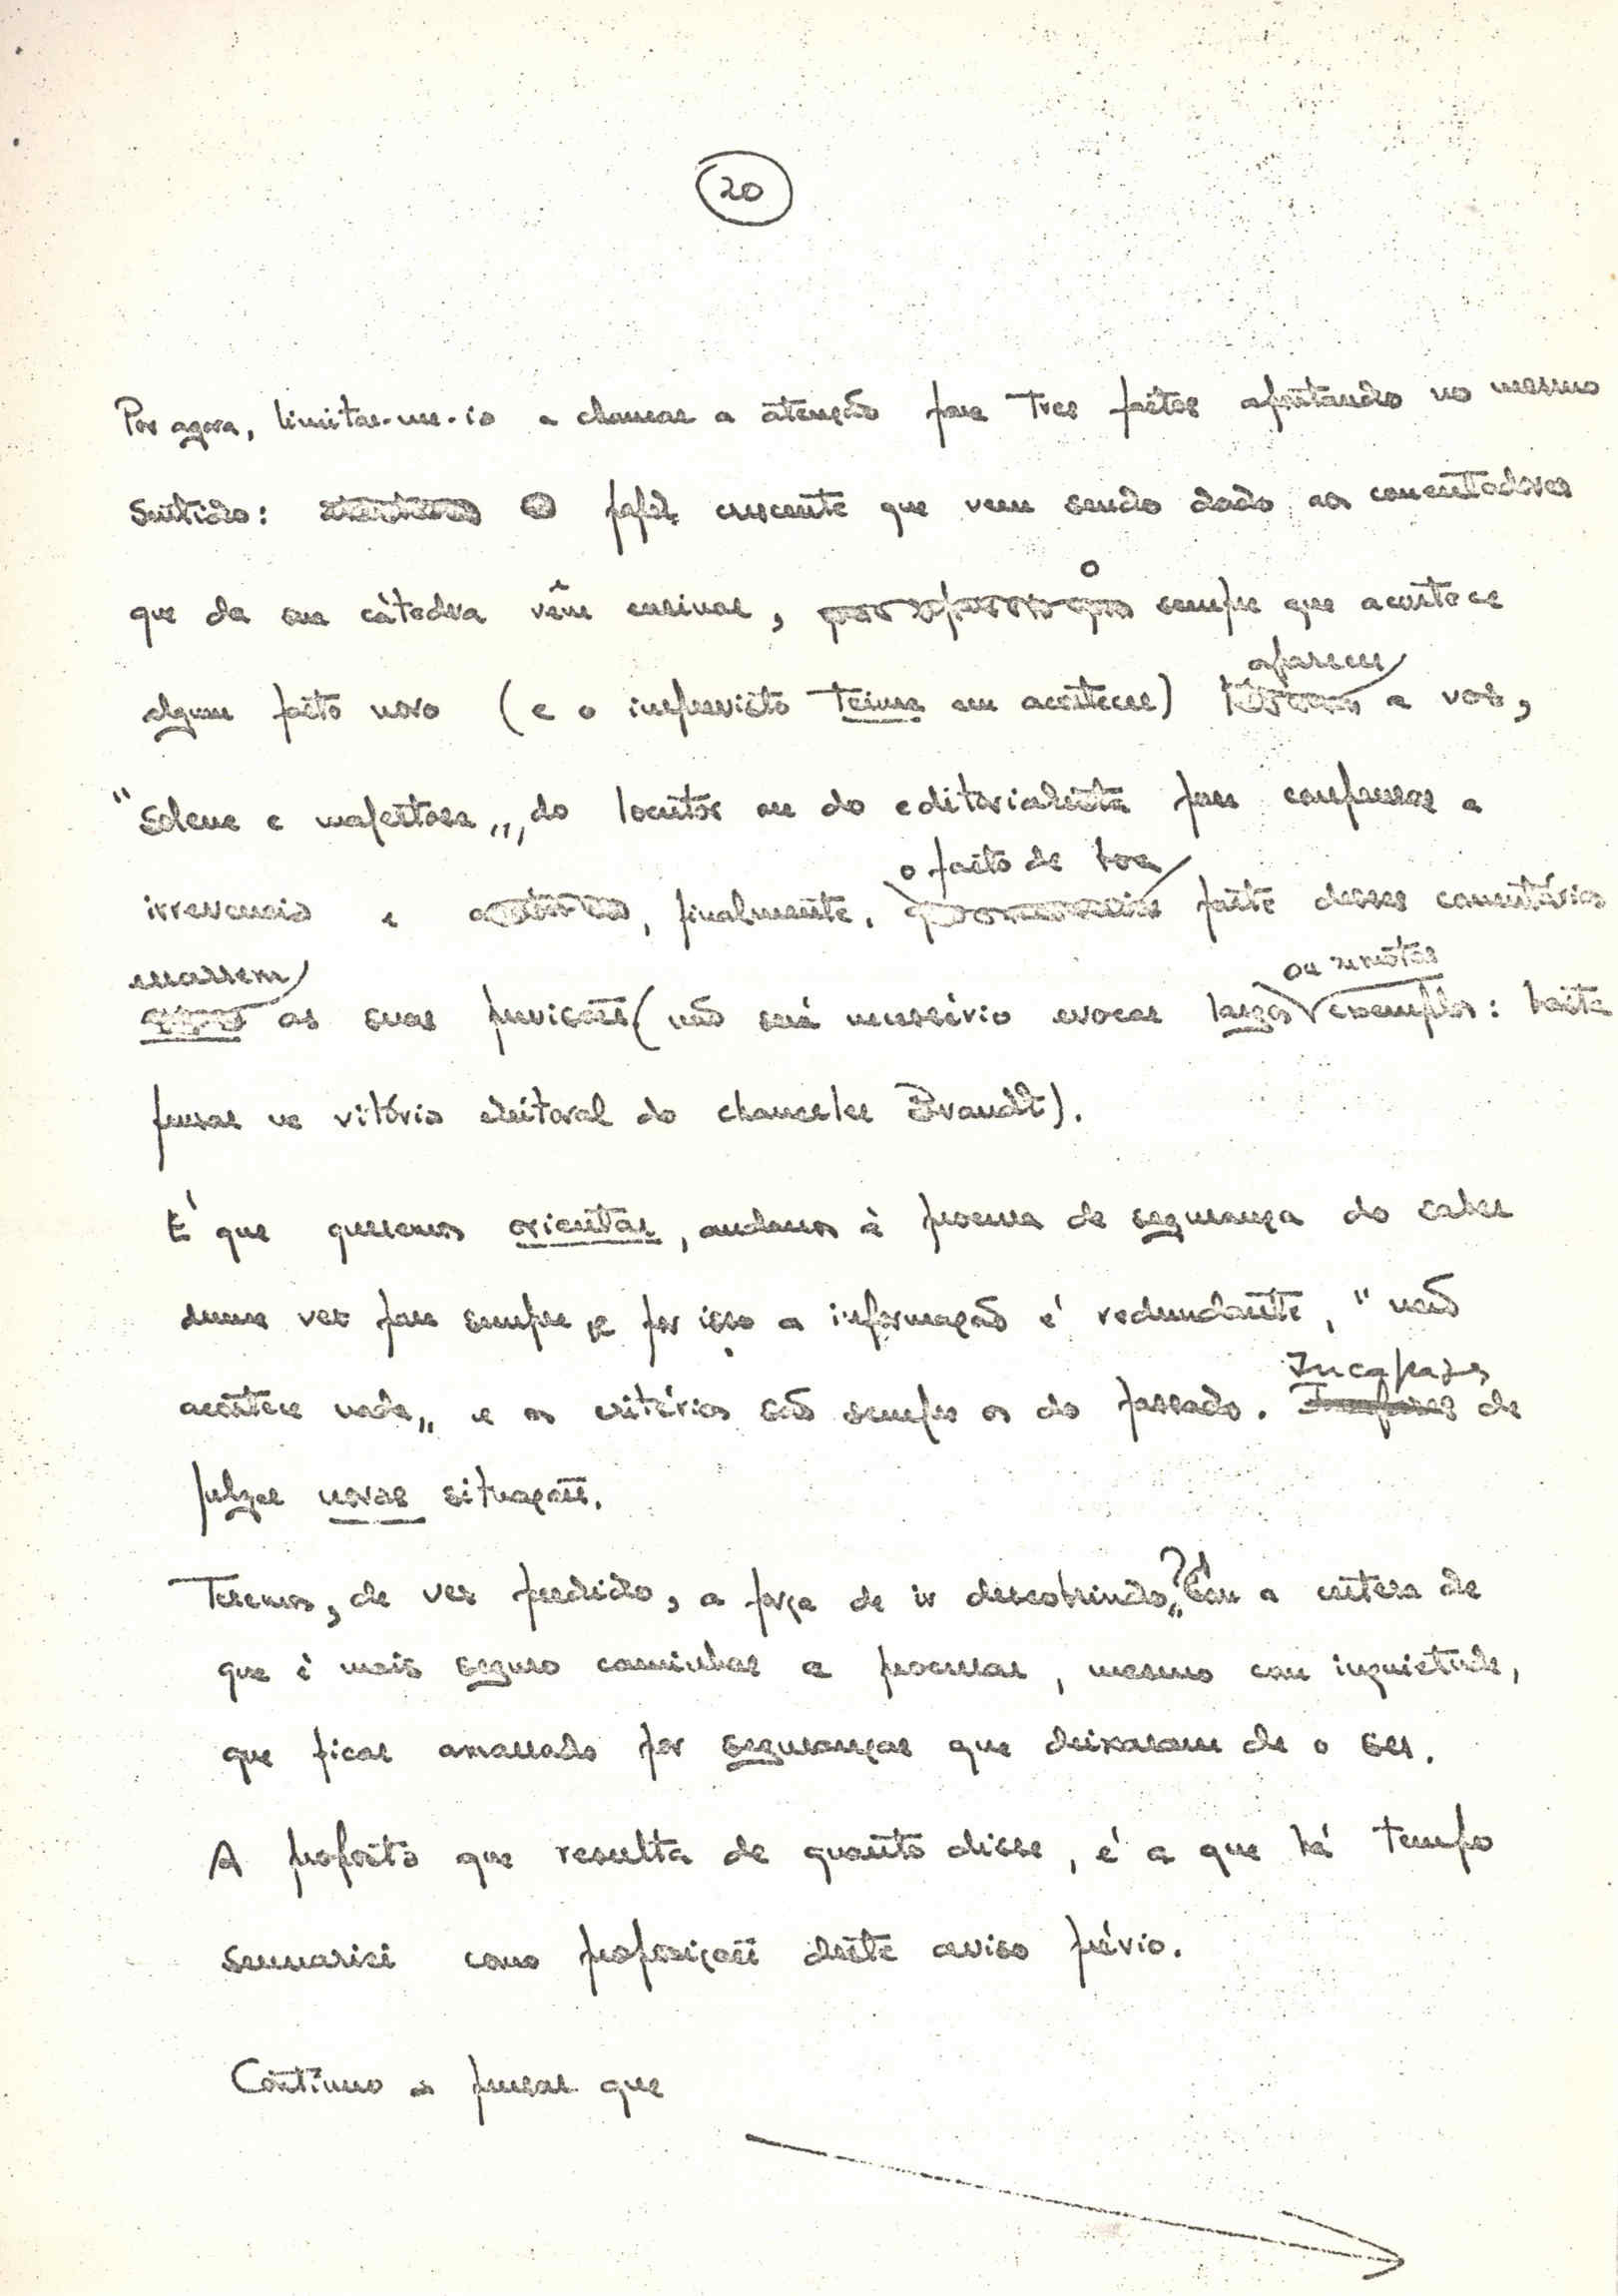 20
Por agora, limitar-me-io a chamar a atenção para Tres factos apontando no mesmo
sentido: o papel crescente que vem sendo dado aos comentadores
que da sua cátedra vêm ensinar, o sempre que acontece
algum facto novo (e o imprevisto Teima em acontecer) aparecer a voz,
"solene e majestosa", do locutor ou do editorialista para compensar a
irreverencia e , finalmente, o facto de boa parte desses comentários
errarem as suas previsões (não será necessário evocar largos ou remotos exemplos: basta
pensar na vitória eleitoral do chanceler Brandt).
É que queremos orientar, andamos à procura de segurança do saber
duma vez para sempre e por isso a informação é redundante, "não
acontece nada" e os critérios são sempre os do passado. Incapazes de
julgar novas situações.
Teremos, de vez perdido, a força de ir descobrindo? Com a certeza de
que é mais seguro caminhar e procurar, mesmo com inquietude,
que ficar amarrado por seguranças que deixaram de o ser.
A proposta que resulta de quanto disse, é a que há tempo
sumariei como proposições deste aviso prévio.
Contínuo a pensar que